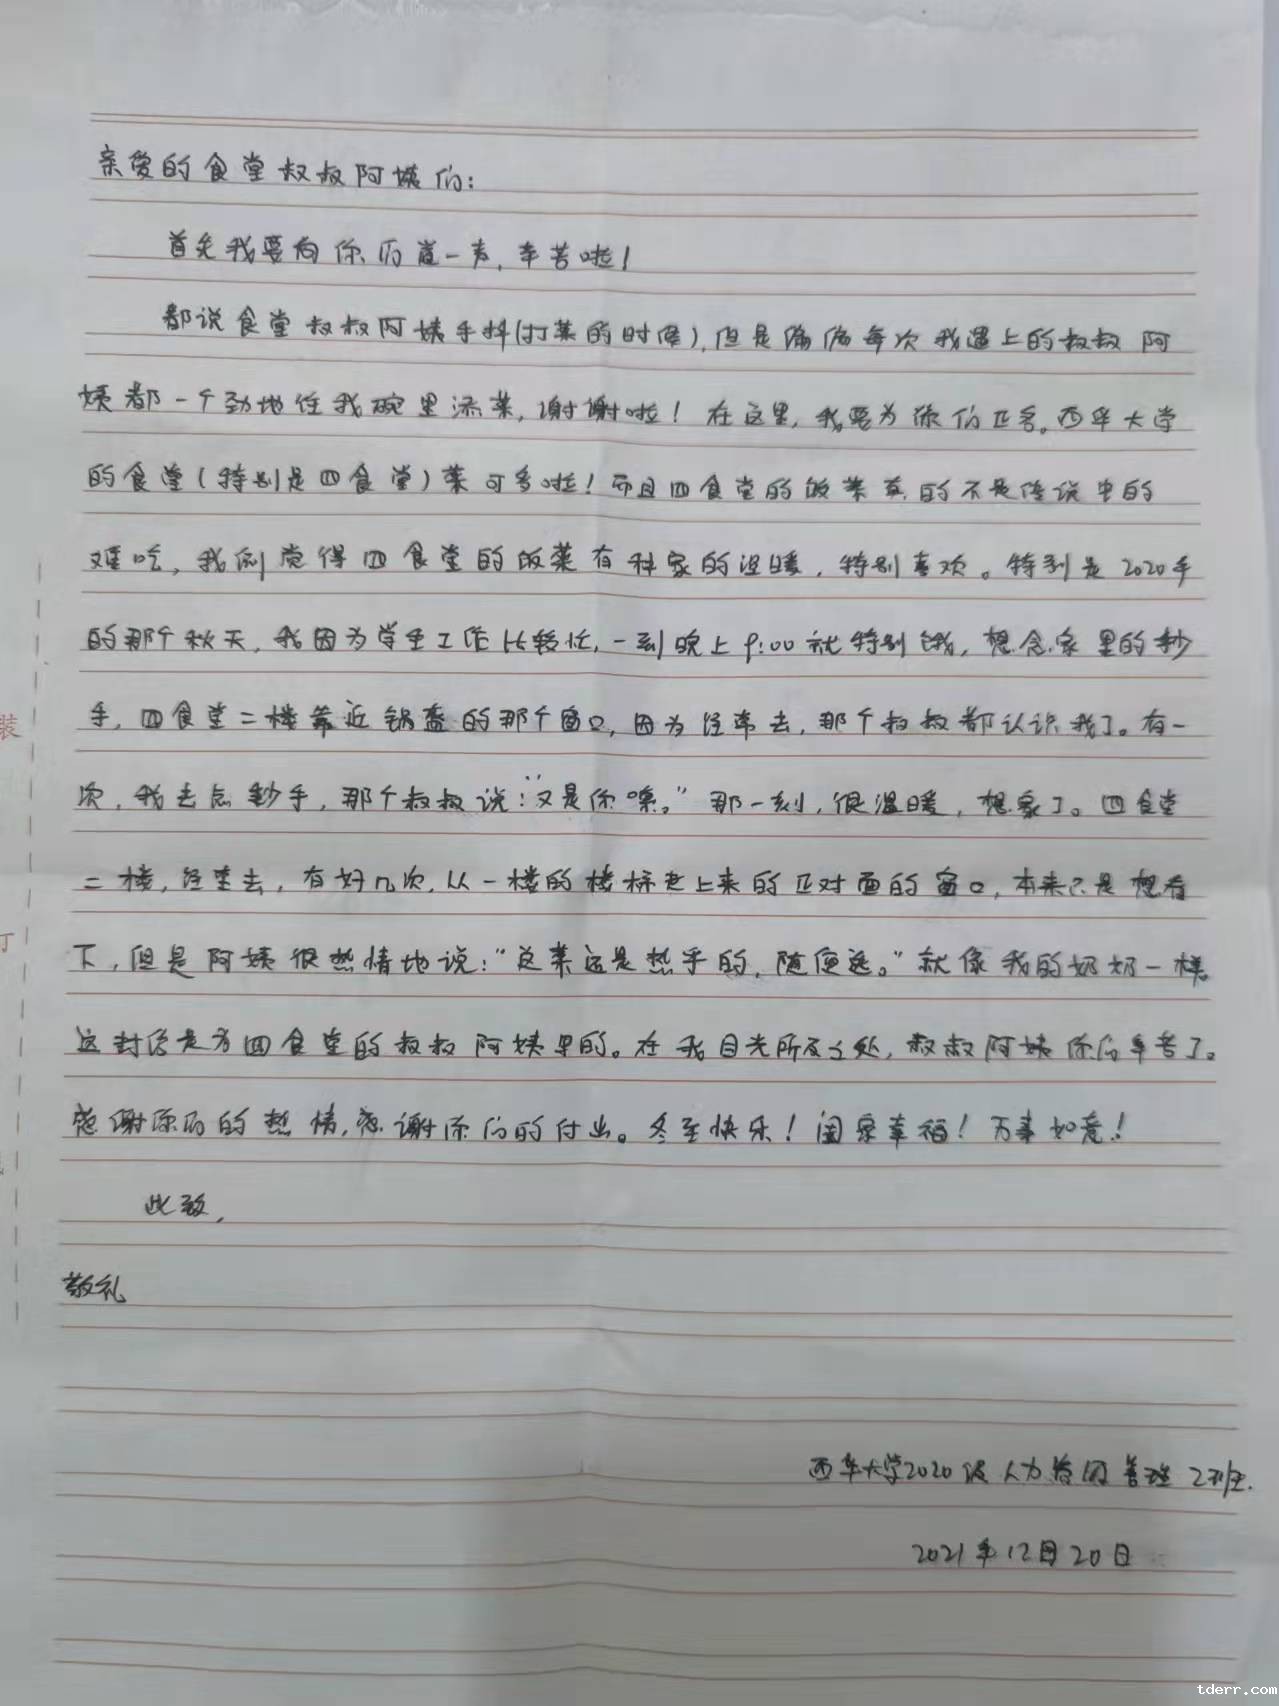 亲爱的食堂叔叔阿姨们：
首先我要向你们道一声，辛苦啦！
都说食堂叔叔阿姨手抖(打菜的时候)，但是偏偏每次我遇上的叔叔阿
姨都一个劲地往我碗里添菜，谢谢啦！在这里，我要为你们正名。西华大学
的食堂(特别是四食堂)菜可多啦！而且四食堂的饭菜真的不是传说中的
难吃，我倒觉得四食堂的饭菜有种家的温暖，特别喜欢。特别是2020年
的那个秋天，我因为学生工作比较忙，一到晚上9:00就特别饿，想念家里的抄
手，四食堂二楼靠近锅盔的那个窗口，因为经常去，那个叔叔都认识我了。有一
次，我去点抄手，那个叔叔说：“又是你嗦。”那一刻，很温暖，想家了。四食堂
二楼，经常去，有好几次，从一楼的楼梯走上来的正对面的窗口，本来只是想看
下，但是阿姨很热情地说：“这菜还是热乎的，随便选。”就像我的奶奶一样。
这封信是为四食堂的叔叔阿姨写的。在我目光所及之处，叔叔阿姨你们辛苦了。
感谢你们的热情，感谢你们的付出。冬至快乐！阖家幸福！万事如意！
此致，
敬礼
西华大学2020级人力资源管理2班.
2021年12月20日
装
订
tderr.com